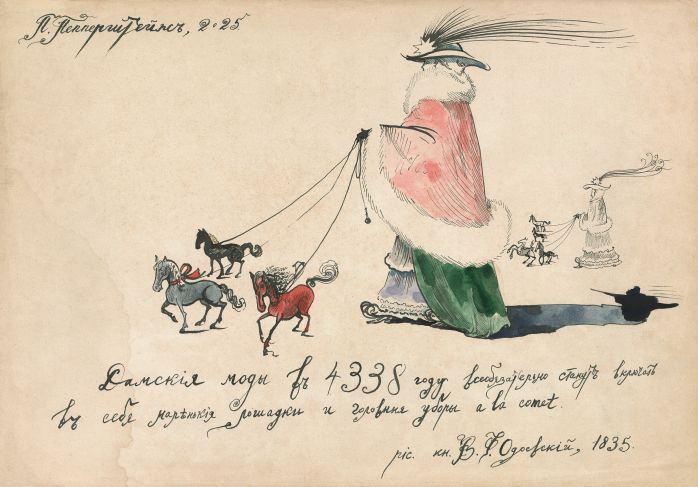 П. Пепперштейнъ, 2025.
Дамскія моды въ 4338 году всеобязательно станутъ включать
въ себя маленькія лошадки и головныя уборы a la comet.
ріс. кн. В. Ѳ. Одоевскій, 1835.